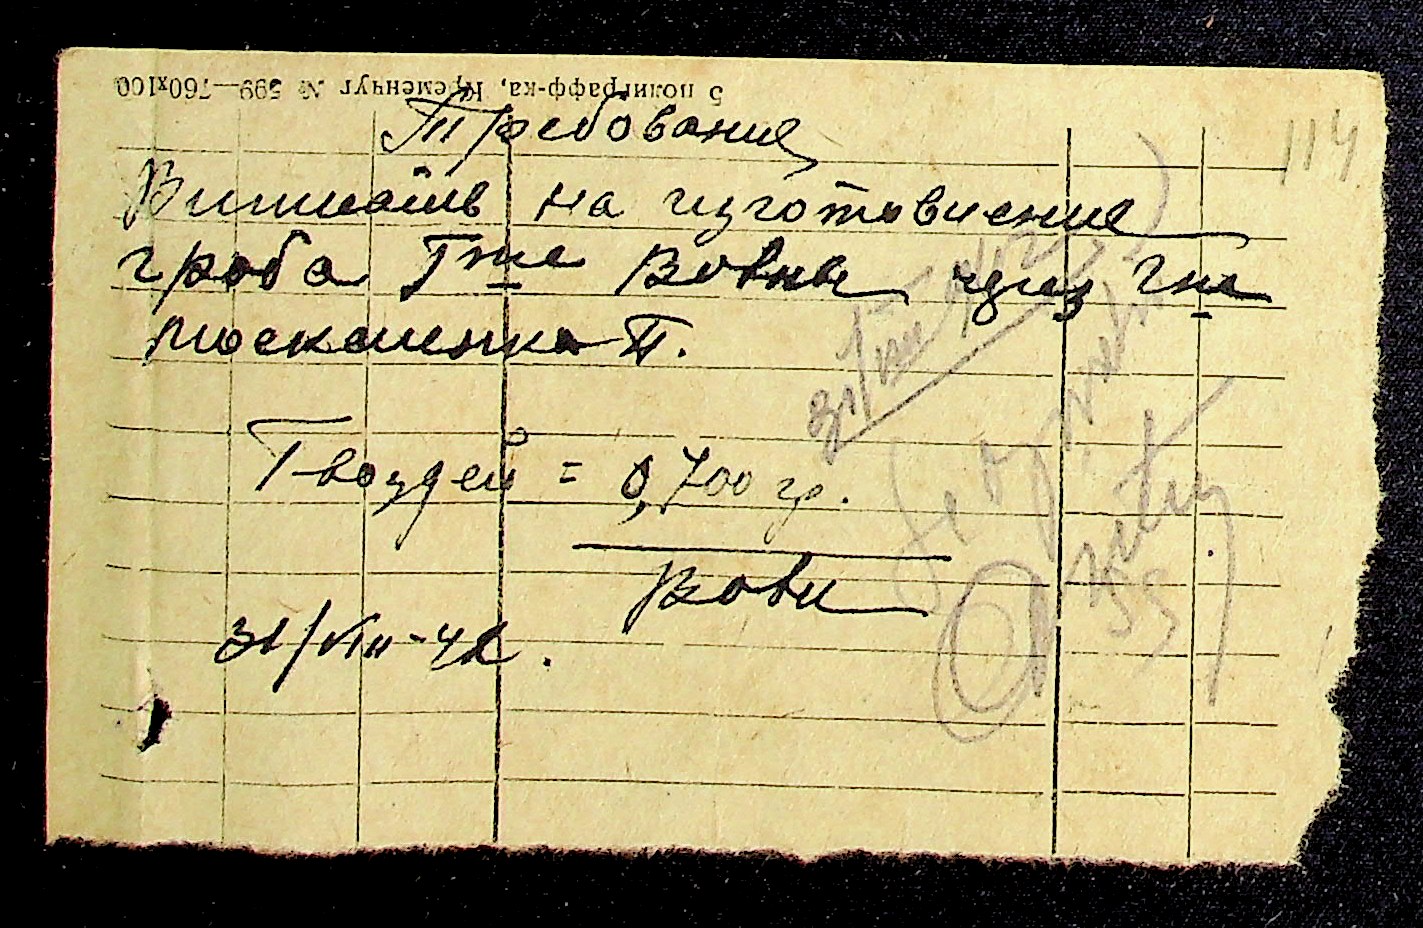 5 полиграфф-ка, Кременчуг № 599—760х100
114
Требование
Випишать на изготовление
гроба Гже Вовны через Гна
Москаленка П.
Гвоздей = 0,700 гр.
Вовн
31/VIII-42.
31/VIII